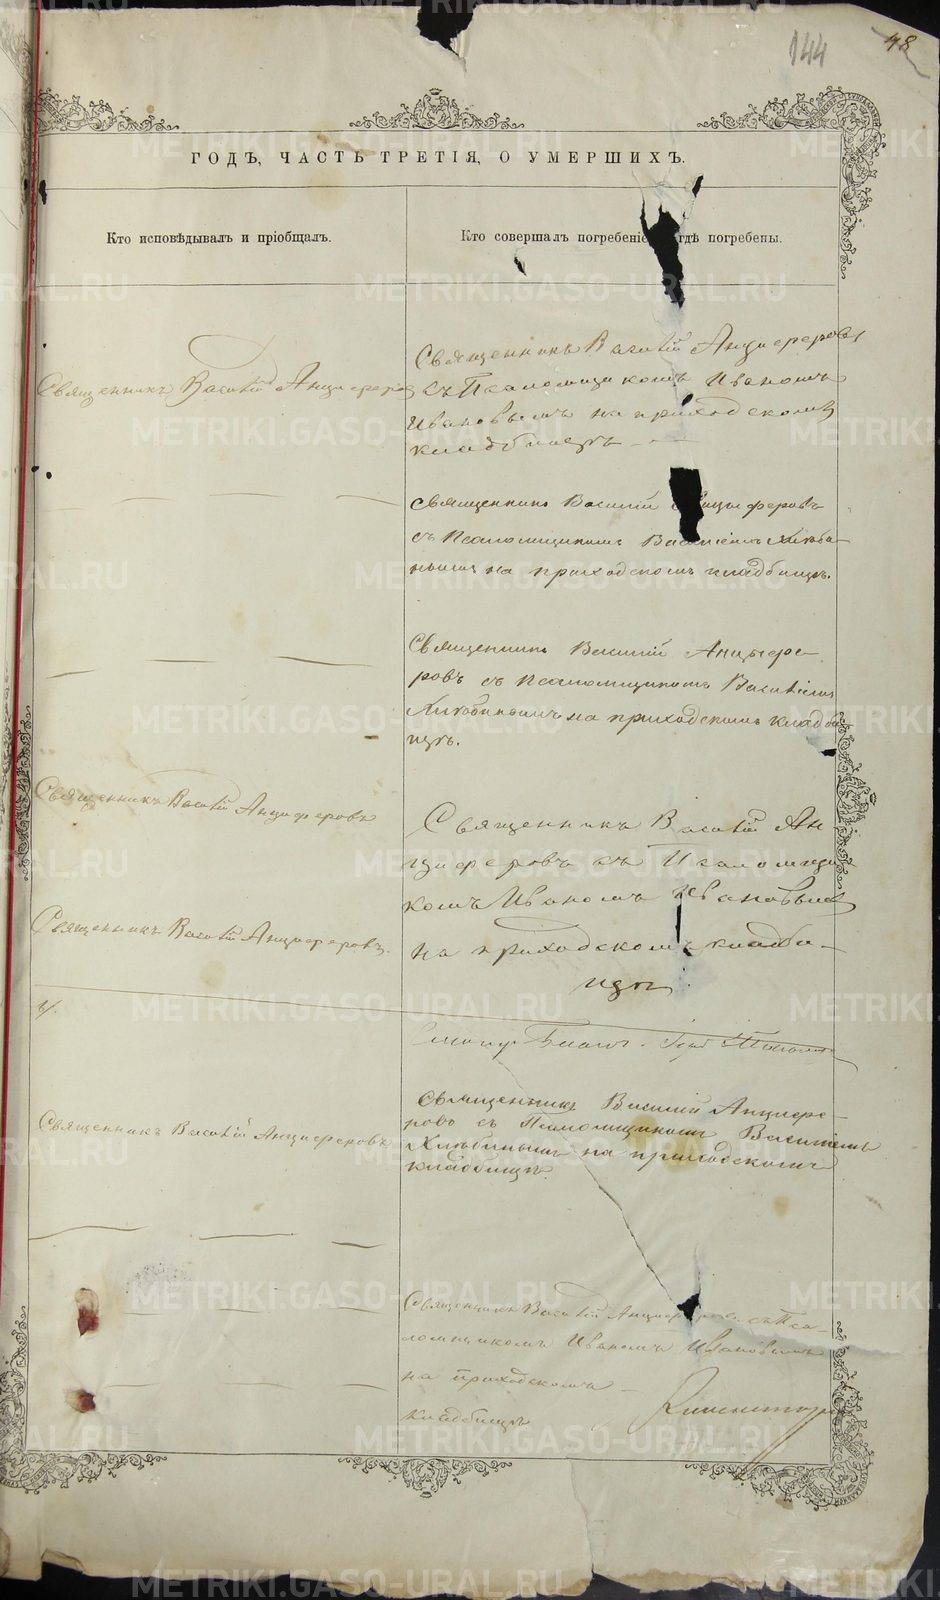 144
48
ГОДЪ, ЧАСТЬ ТРЕТІЯ, О УМЕРШИХЪ.
Кто исповѣдывалъ и пріобщалъ.
Кто совершалъ погребеніе гдѣ погребены.
Священникъ Василій Анциферовъ
Священникъ Василій Анциферовъ
съ Псаломщикомъ Иваномъ
Ивановымъ на приходскомъ
кладбищѣ
Священникъ Василій Анцыферовъ
съ Псаломщикомъ Василіемъ Хлѣби-
нымъ на приходскомъ кладбищѣ.
Священникъ Василій Анцыфе-
ровъ съ Псаломщикомъ Василіемъ
Хлѣбинымъ на приходскомъ кладби
щѣ.
Священникъ Василій Анциферовъ
Священникъ Василій Ан
циферовъ съ Псаломщи
комъ Иваномъ Ивановымъ
на приходскомъ кладби-
щѣ
Священникъ Василій Анциферовъ
Священникъ Василій Анциферовъ
Священникъ Василій Анцифе-
ровъ съ Псаломщикомъ Василіемъ
Хлѣбинымъ на приходскомъ
кладбищѣ
Священникъ Василій Анциферовъ съ Пса-
ломщикомъ Иваномъ Ивановымъ
на приходскомъ
кладбищѣ
METRIKI.GASO-URAL.RU